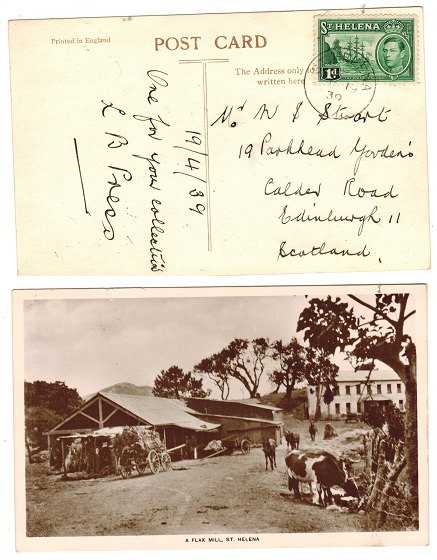 Printed in England
POST CARD
The Address only to
written here
ST HELENA
1d
One for your collection
L B
19/4/39
Mr W J Stuart
19 Parkhead Gordens
Calder Road
Edinburgh 11
Scotland.
ST HELENA
A FLAX MILL, ST. HELENA